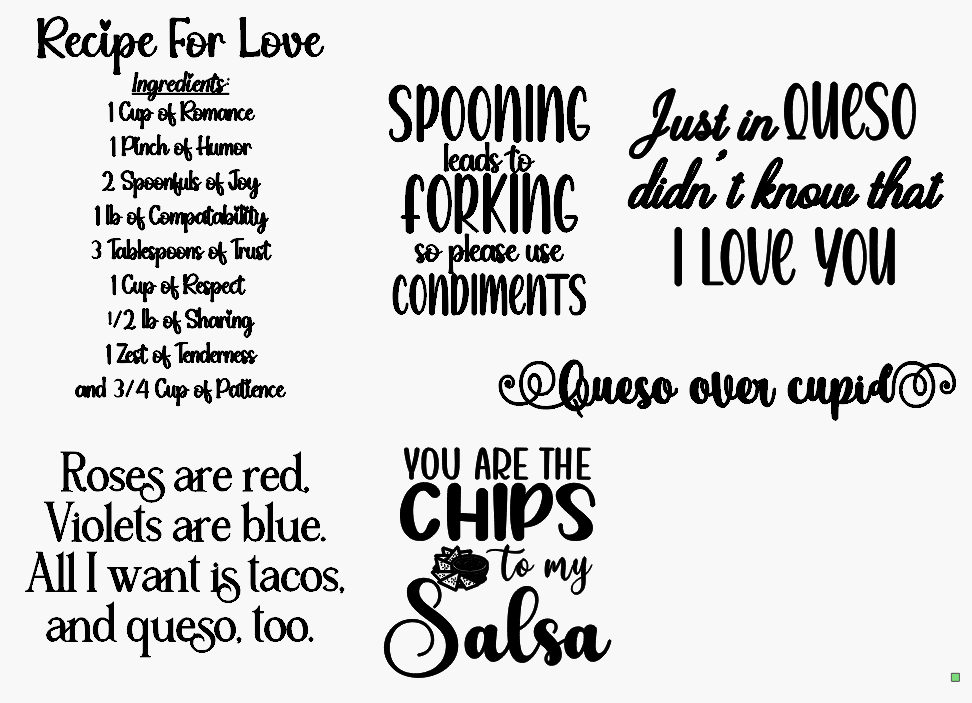 Recipe For Love
Ingredients:
1 Cup of Romance
1 Pinch of Humor
2 Spoonfuls of Joy
1 lb of Compatability
3 Tablespoons of Trust
1 Cup of Respect
1/2 lb of Sharing
1 Zest of Tenderness
and 3/4 Cup of Patience
SPOONING
leads to
FORKING
so please use
CONDIMENTS
Just in QUESO
didn't know that
I LOVE YOU
Queso over cupid
Roses are red,
Violets are blue.
All I want is tacos,
and queso, too.
YOU ARE THE
CHIPS
to my
Salsa